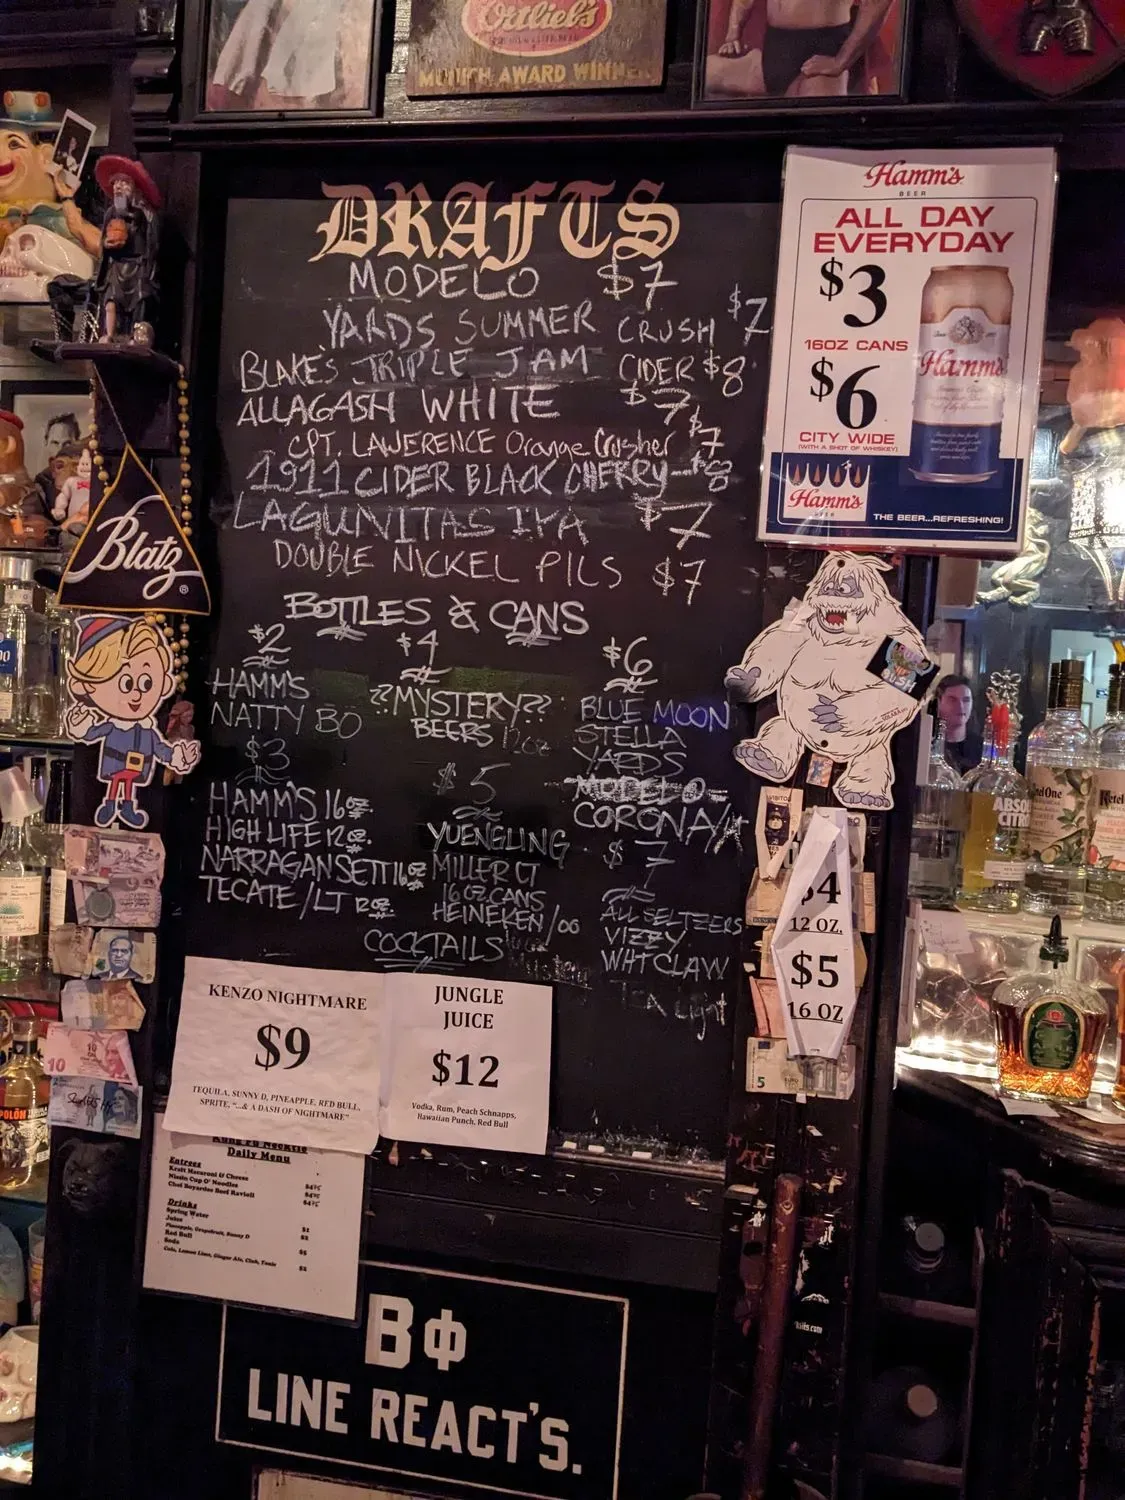 Ortlieb's
MUNICH AWARD WINNER
DRAFTS
MODELO $7
YARDS SUMMER CRUSH $7
BLAKE'S TRIPLE JAM CIDER $8
ALLAGASH WHITE $7
CPT. LAWERENCE Orange Crusher $7
1911 CIDER BLACK CHERRY $8
LAGUNITAS IPA $7
DOUBLE NICKEL PILS $7
BOTTLES & CANS
$2
HAMM'S
NATTY BO
$3
HAMM'S 16oz.
HIGH LIFE 12oz.
NARRAGANSETT 16oz
TECATE/LT 12oz.
$4
??MYSTERY??
BEERS 12oz
$5
YUENGLING
MILLER LT
16OZ CANS
HEINEKEN/00
$6
BLUE MOON
STELLA
YARDS
MODELO
CORONA/
$7
ALL SELTZERS
VIZZY
WHT CLAW
COCKTAILS
KENZO NIGHTMARE
$9
TEQUILA, SUNNY D, PINEAPPLE, RED BULL,
SPRITE, "...& A DASH OF NIGHTMARE"
JUNGLE
JUICE
$12
Vodka, Rum, Peach Schnapps,
Hawaiian Punch, Red Bull
Kung Fu Necktie
Daily Menu
Entrees
Kraft Macaroni & Cheese
Nissin Cup O' Noodles
Chef Boyardee Beef Ravioli
Drinks
Spring Water
Juice
Pineapple, Grapefruit, Sunny D
Red Bull
Soda
Cola, Lemon Lime, Ginger Ale, Club, Tonic
BΦ
LINE REACT'S.
Hamm's
BEER
ALL DAY
EVERYDAY
$3
16OZ CANS
$6
CITY WIDE
(WITH A SHOT OF WHISKEY)
Hamm's
Hamm's
THE BEER...REFRESHING!
Blatz
®
$4
12 OZ.
$5
16 OZ
10
5
ABSOLUT
CITRON
Ketel One
Ketel